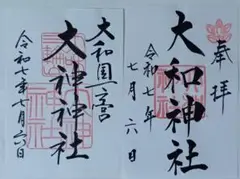 奉拝
大和神社
令和七年
七月六日
大和國一之宮
大神神社
令和七年七月六日